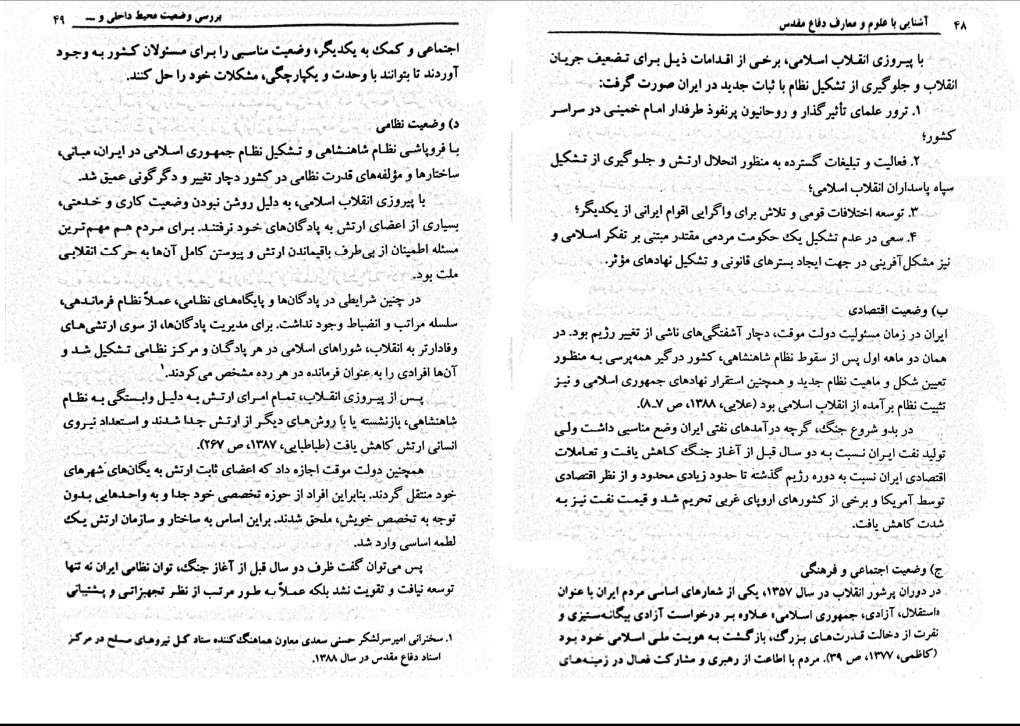 ۴۸ آشنایی با علوم و معارف دفاع مقدس
با پیروزی انقلاب اسلامی، برخی از اقدامات ذیل برای تضعیف جریان
انقلاب و جلوگیری از تشکیل نظام با ثبات جدید در ایران صورت گرفت:
۱. ترور علمای تأثیرگذار و روحانیون پرنفوذ طرفدار امام خمینی در سراسر
کشور؛
۲. فعالیت و تبلیغات گسترده به منظور انحلال ارتش و جلوگیری از تشکیل
سپاه پاسداران انقلاب اسلامی؛
۳. توسعه اختلافات قومی و تلاش برای واگرایی اقوام ایرانی از یکدیگر؛
۴. سعی در عدم تشکیل یک حکومت مردمی مقتدر مبتنی بر تفکر اسلامی و
نیز مشکل‌آفرینی در جهت ایجاد بسترهای قانونی و تشکیل نهادهای مؤثر.
ب) وضعیت اقتصادی
ایران در زمان مسئولیت دولت موقت، دچار آشفتگی‌های ناشی از تغییر رژیم بود. در
همان دو ماهه اول پس از سقوط نظام شاهنشاهی، کشور درگیر همه‌پرسی به منظور
تعیین شکل و ماهیت نظام جدید و همچنین استقرار نهادهای جمهوری اسلامی و نیز
تثبیت نظام برآمده از انقلاب اسلامی بود (علایی، ۱۳۸۸، ص ۷ـ۸).
در بدو شروع جنگ، گرچه درآمدهای نفتی ایران وضع مناسبی داشت ولی
تولید نفت ایران نسبت به دو سال قبل از آغاز جنگ کاهش یافت و تعاملات
اقتصادی ایران نسبت به دوره رژیم گذشته تا حدود زیادی محدود و از نظر اقتصادی
توسط آمریکا و برخی از کشورهای اروپای غربی تحریم شد و قیمت نفت نیز به
شدت کاهش یافت.
ج) وضعیت اجتماعی و فرهنگی
در دوران پرشور انقلاب در سال ۱۳۵۷، یکی از شعارهای اساسی مردم ایران با عنوان
«استقلال، آزادی، جمهوری اسلامی» علاوه بر درخواست آزادی بیگانه‌ستیزی و
نفرت از دخالت قدرت‌های بزرگ، بازگشت به هویت ملی اسلامی خود بود
(کاظمی، ۱۳۷۷، ص ۳۹). مردم با اطاعت از رهبری و مشارکت فعال در زمینه‌های
بررسی وضعیت محیط داخلی و ... ۴۹
اجتماعی و کمک به یکدیگر، وضعیت مناسبی را برای مسئولان کشور به وجود
آوردند تا بتوانند با وحدت و یکپارچگی، مشکلات خود را حل کنند.
د) وضعیت نظامی
با فروپاشی نظام شاهنشاهی و تشکیل نظام جمهوری اسلامی در ایران، مبانی،
ساختارها و مؤلفه‌های قدرت نظامی در کشور دچار تغییر و دگرگونی عمیق شد.
با پیروزی انقلاب اسلامی، به دلیل روشن نبودن وضعیت کاری و خدمتی،
بسیاری از اعضای ارتش به پادگان‌های خود نرفتند. برای مردم هم مهم‌ترین
مسئله اطمینان از بی‌طرف باقیماندن ارتش و پیوستن کامل آن‌ها به حرکت انقلابی
ملت بود.
در چنین شرایطی در پادگان‌ها و پایگاه‌های نظامی، عملاً نظام فرماندهی،
سلسله مراتب و انضباط وجود نداشت. برای مدیریت پادگان‌ها، از سوی ارتشی‌های
وفادارتر به انقلاب، شوراهای اسلامی در هر پادگان و مرکز نظامی تشکیل شد و
آن‌ها افرادی را به عنوان فرمانده در هر رده مشخص می‌کردند.۱
پس از پیروزی انقلاب، تمام امرای ارتش به دلیل وابستگی به نظام
شاهنشاهی، بازنشسته یا با روش‌های دیگر از ارتش جدا شدند و استعداد نیروی
انسانی ارتش کاهش یافت (طباطبایی، ۱۳۸۷، ص ۲۶۷).
همچنین دولت موقت اجازه داد که اعضای ثابت ارتش به یگان‌های شهرهای
خود منتقل گردند. بنابراین افراد از حوزه تخصصی خود جدا و به واحدهایی بدون
توجه به تخصص خویش، ملحق شدند. براین اساس به ساختار و سازمان ارتش یک
لطمه اساسی وارد شد.
پس می‌توان گفت ظرف دو سال قبل از آغاز جنگ، توان نظامی ایران نه تنها
توسعه نیافت و تقویت نشد بلکه عملاً به طور مرتب از نظر تجهیزاتی و پشتیبانی
۱. سخنرانی امیرسرلشکر حسنی سعدی معاون هماهنگ‌کننده ستاد کل نیروهای مسلح در مرکز
اسناد دفاع مقدس در سال ۱۳۸۸.